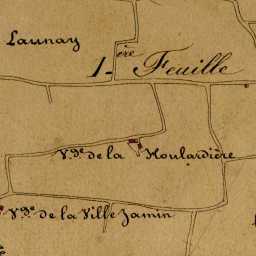 Launay
1ère Feuille
V.ge de la Houlardière
V.ge de la Ville Jamin